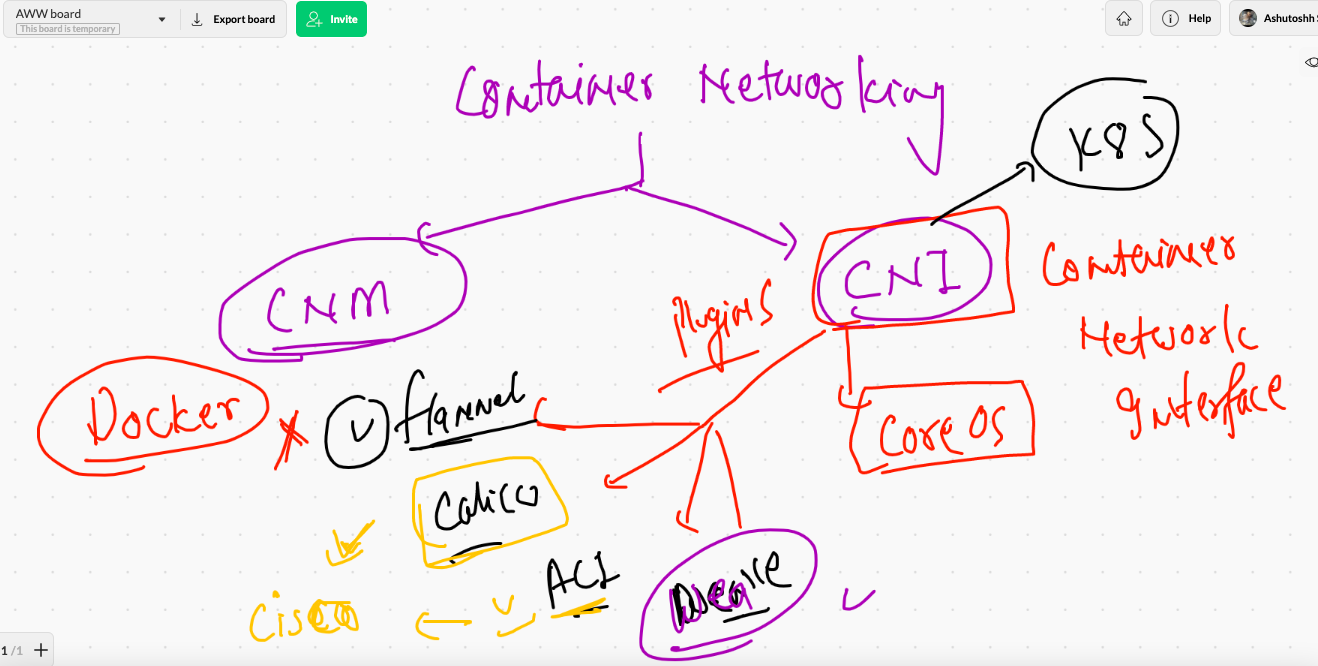 AWW board
This board is temporary
Export board
Invite
Help
Ashutoshh
Container Networking
K8S
CNM
CNI
Container
Network
Interface
Plugins
Docker
flannel
Core OS
Calico
ACI
Cisco
1 / 1 +